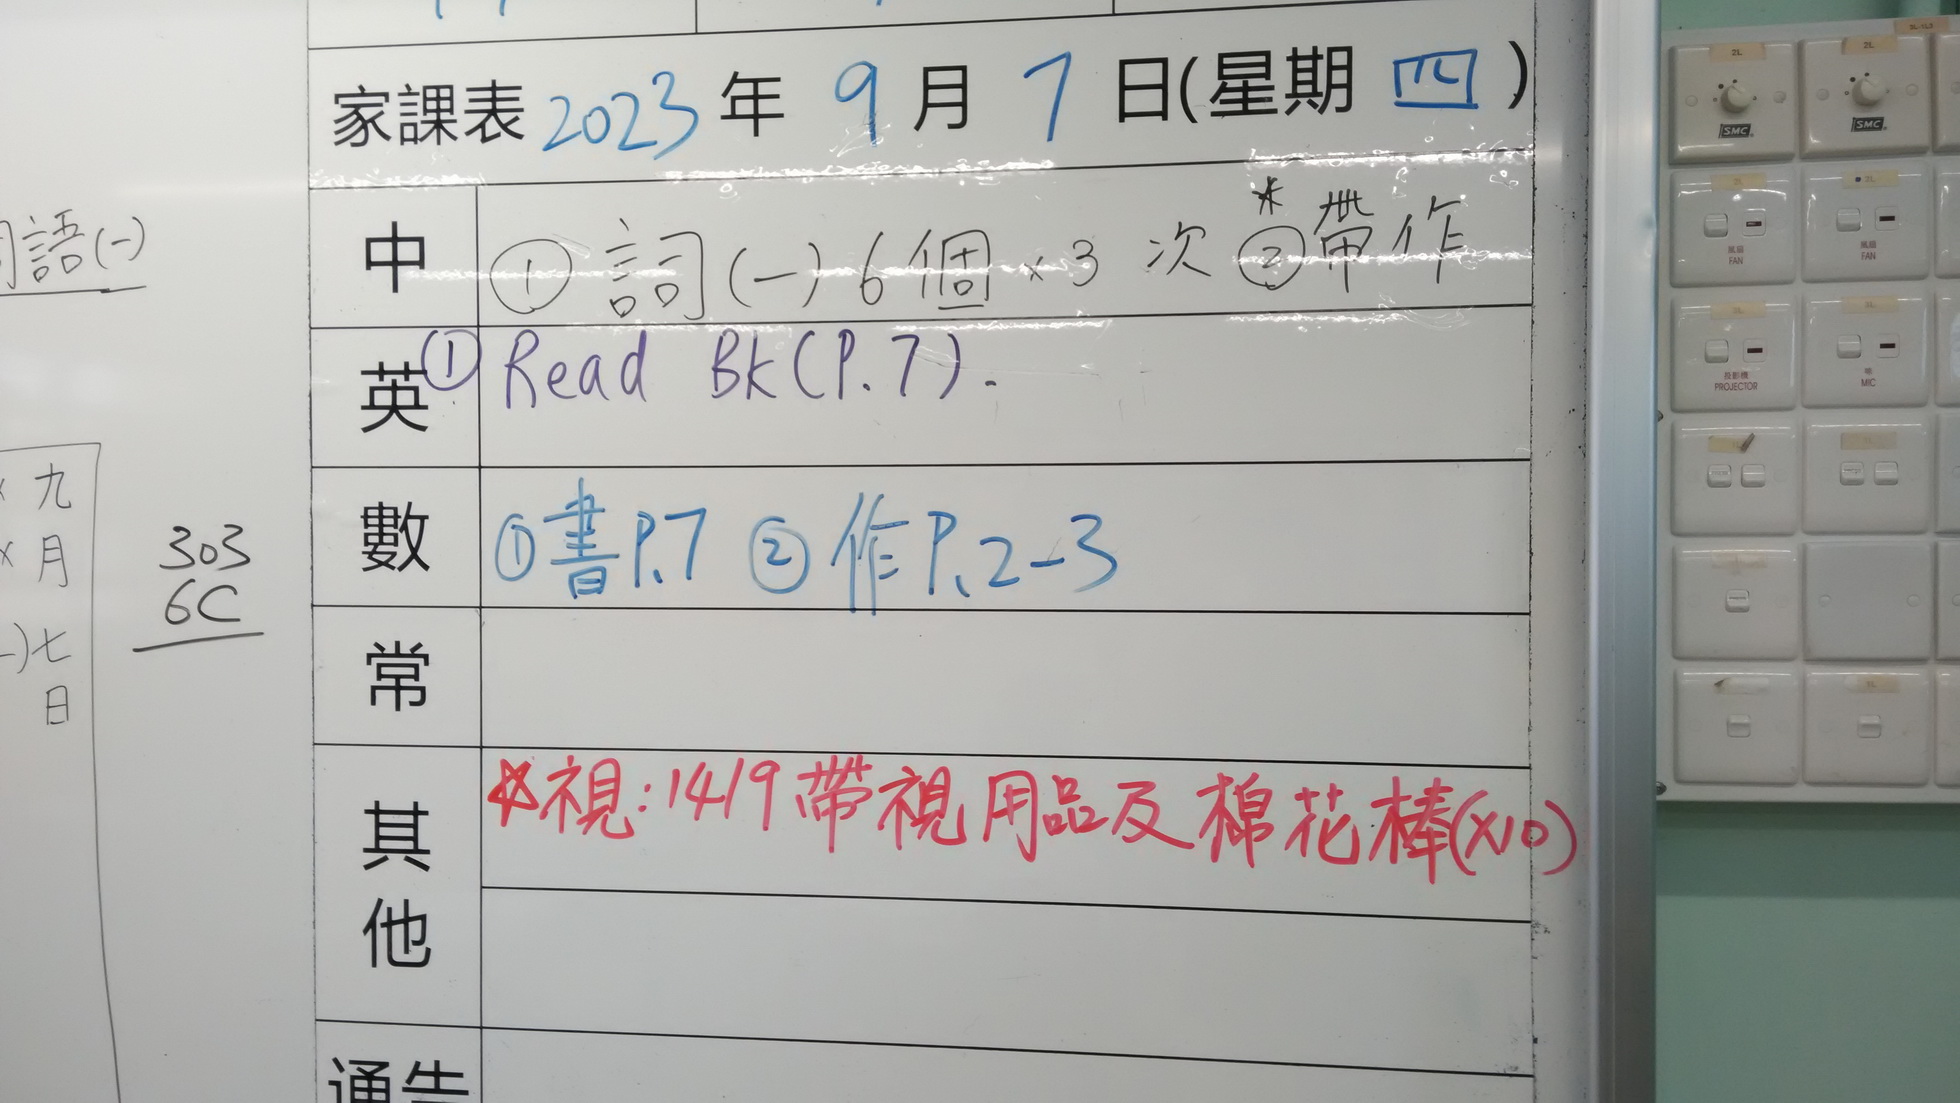 語(一)
九
月
七
日
303
6C
家課表 2023 年 9 月 7 日(星期 四)
中 ① 詞(一) 6個 × 3 次 *②帶作
英 ① Read Bk (P.7).
數 ①書P.7 ②作P.2-3
常
其他 ☆視:14/9帶視用品及棉花棒(x10)
通告
2L
2L
SMC
SMC
2L
2L
風扇
FAN
風扇
FAN
投影機
PROJECTOR
咪
MIC